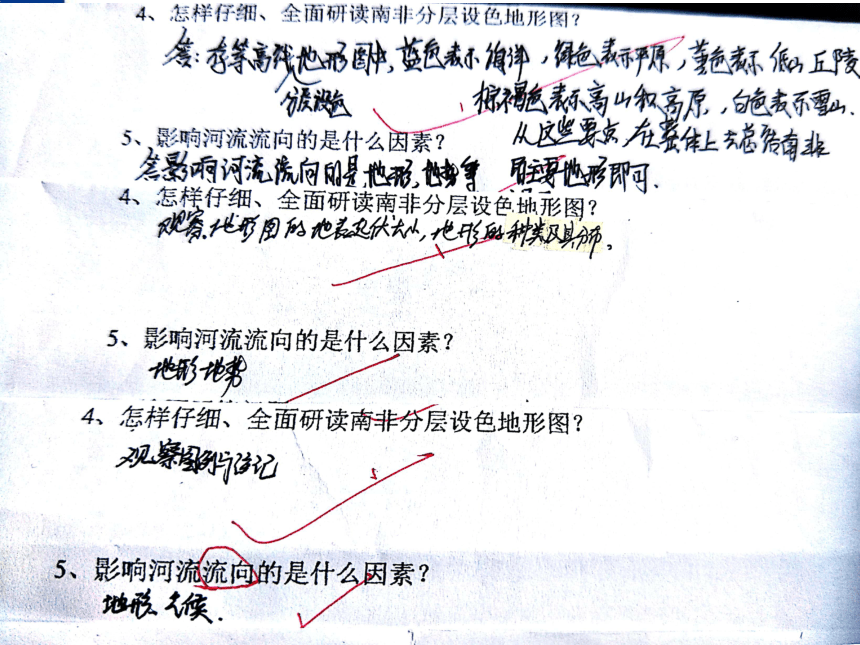 4、怎样仔细、全面研读南非分层设色地形图？
答：在等高线地形图中，蓝色表示海洋，绿色表示平原，黄色表示低山丘陵
分层设色
棕褐色表示高山和高原，白色表示雪山．
从这些要点，在整体上去总结南非
的主要地形即可．
5、影响河流流向的是什么因素？
答影响河流流向的是，地形，地势等
4、怎样仔细、全面研读南非分层设色地形图？
观察地形图的地表起伏大小，地形的种类及其分布。
5、影响河流流向的是什么因素？
地形地势
4、怎样仔细、全面研读南非分层设色地形图？
观察图例与注记
5、影响河流流向的是什么因素？
地形、气候．